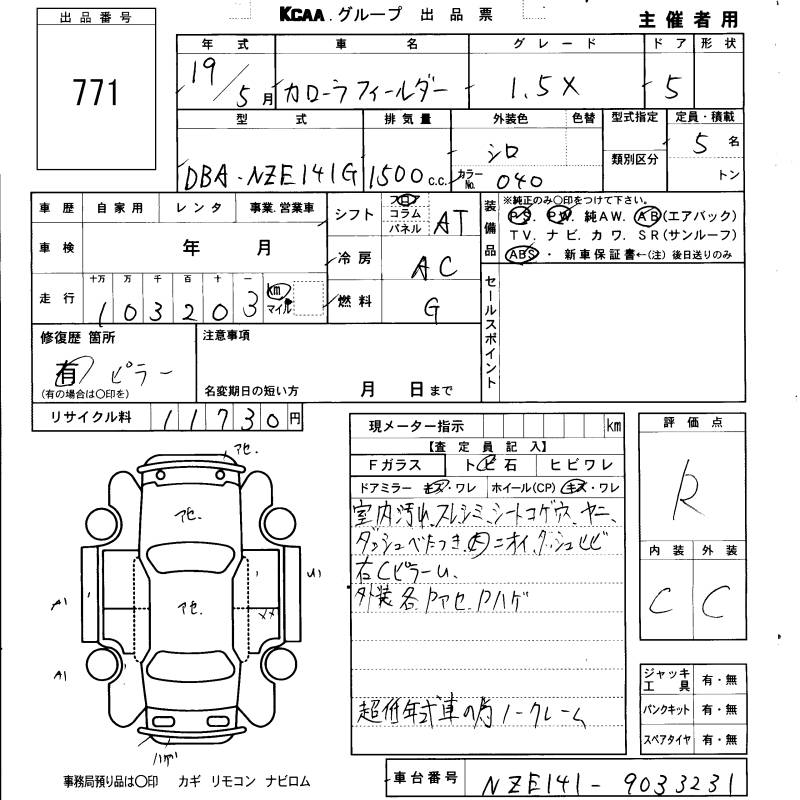 出品番号
KCAA.グループ 出品票
主催者用
771
年式 車名 グレード ドア 形状
19/5月 カローラフィールダー 1.5X 5
型式 排気量 外装色 色替 型式指定 定員・積載
DBA-NZE141G 1500c.c. シロ カラーNo. 040 類別区分 5名 トン
車歴 自家用 レンタ 事業.営業車
車検 年 月
走行 十万 万 千 百 十 一
103203 km マイル
シフト フロア コラム パネル AT
冷房 AC
燃料 G
装備品 ※純正のみ○印をつけて下さい。
PS. PW. 純AW. AB(エアバック)
TV. ナビ. カワ. SR(サンルーフ)
ABS・ 新車保証書←(注)後日送りのみ
セールスポイント
修復歴 箇所 注意事項
有 ピラー
(有の場合は○印を) 名変期日の短い方 月 日まで
リサイクル料 11730円
現メーター指示 km
【査定員記入】
Fガラス トビ石 ヒビワレ
ドアミラー キズ・ワレ ホイール(CP) キズ・ワレ
室内汚れ、スレ、シミ、シートコゲウス、ヤニ、
ダッシュベたつき、内ニオイ、ダッシュヒビ
右CピラーU、
外装各.Pアセ.Pハゲ
超低年式車の為ノークレーム
評価点
R
内装 外装
C C
ジャッキ工具 有・無
パンクキット 有・無
スペアタイヤ 有・無
アセ.
アセ.
アセ.
A1
A1
U1
ハゲ
事務局預り品は○印 カギ リモコン ナビロム
車台番号 NZE141-9033231